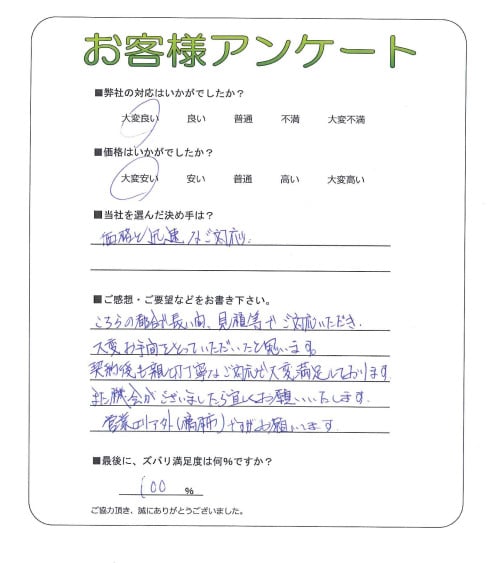 お客様アンケート
■弊社の対応はいかがでしたか？
大変良い 良い 普通 不満 大変不満
■価格はいかがでしたか？
大変安い 安い 普通 高い 大変高い
■当社を選んだ決め手は？
価格と迅速なご対応。
■ご感想・ご要望などをお書き下さい。
こちらの都合で長い間、見積等でご対応いただき、
大変お手間をとっていただいたと思います。
契約後も親切丁寧なご対応で大変満足しております
また機会がございましたら宜しくお願いいたします。
営業エリア外ですがお願いします。
■最後に、ズバリ満足度は何％ですか？
100 %
ご協力頂き、誠にありがとうございました。